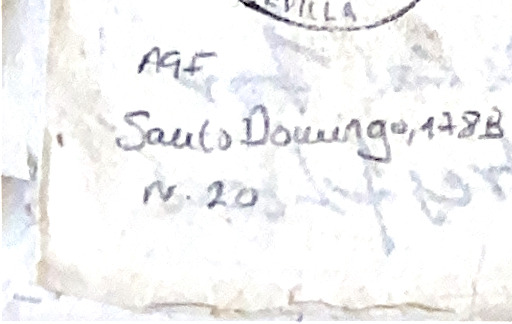 EVILLA
AGI
Santo Domingo, 178B
N. 20